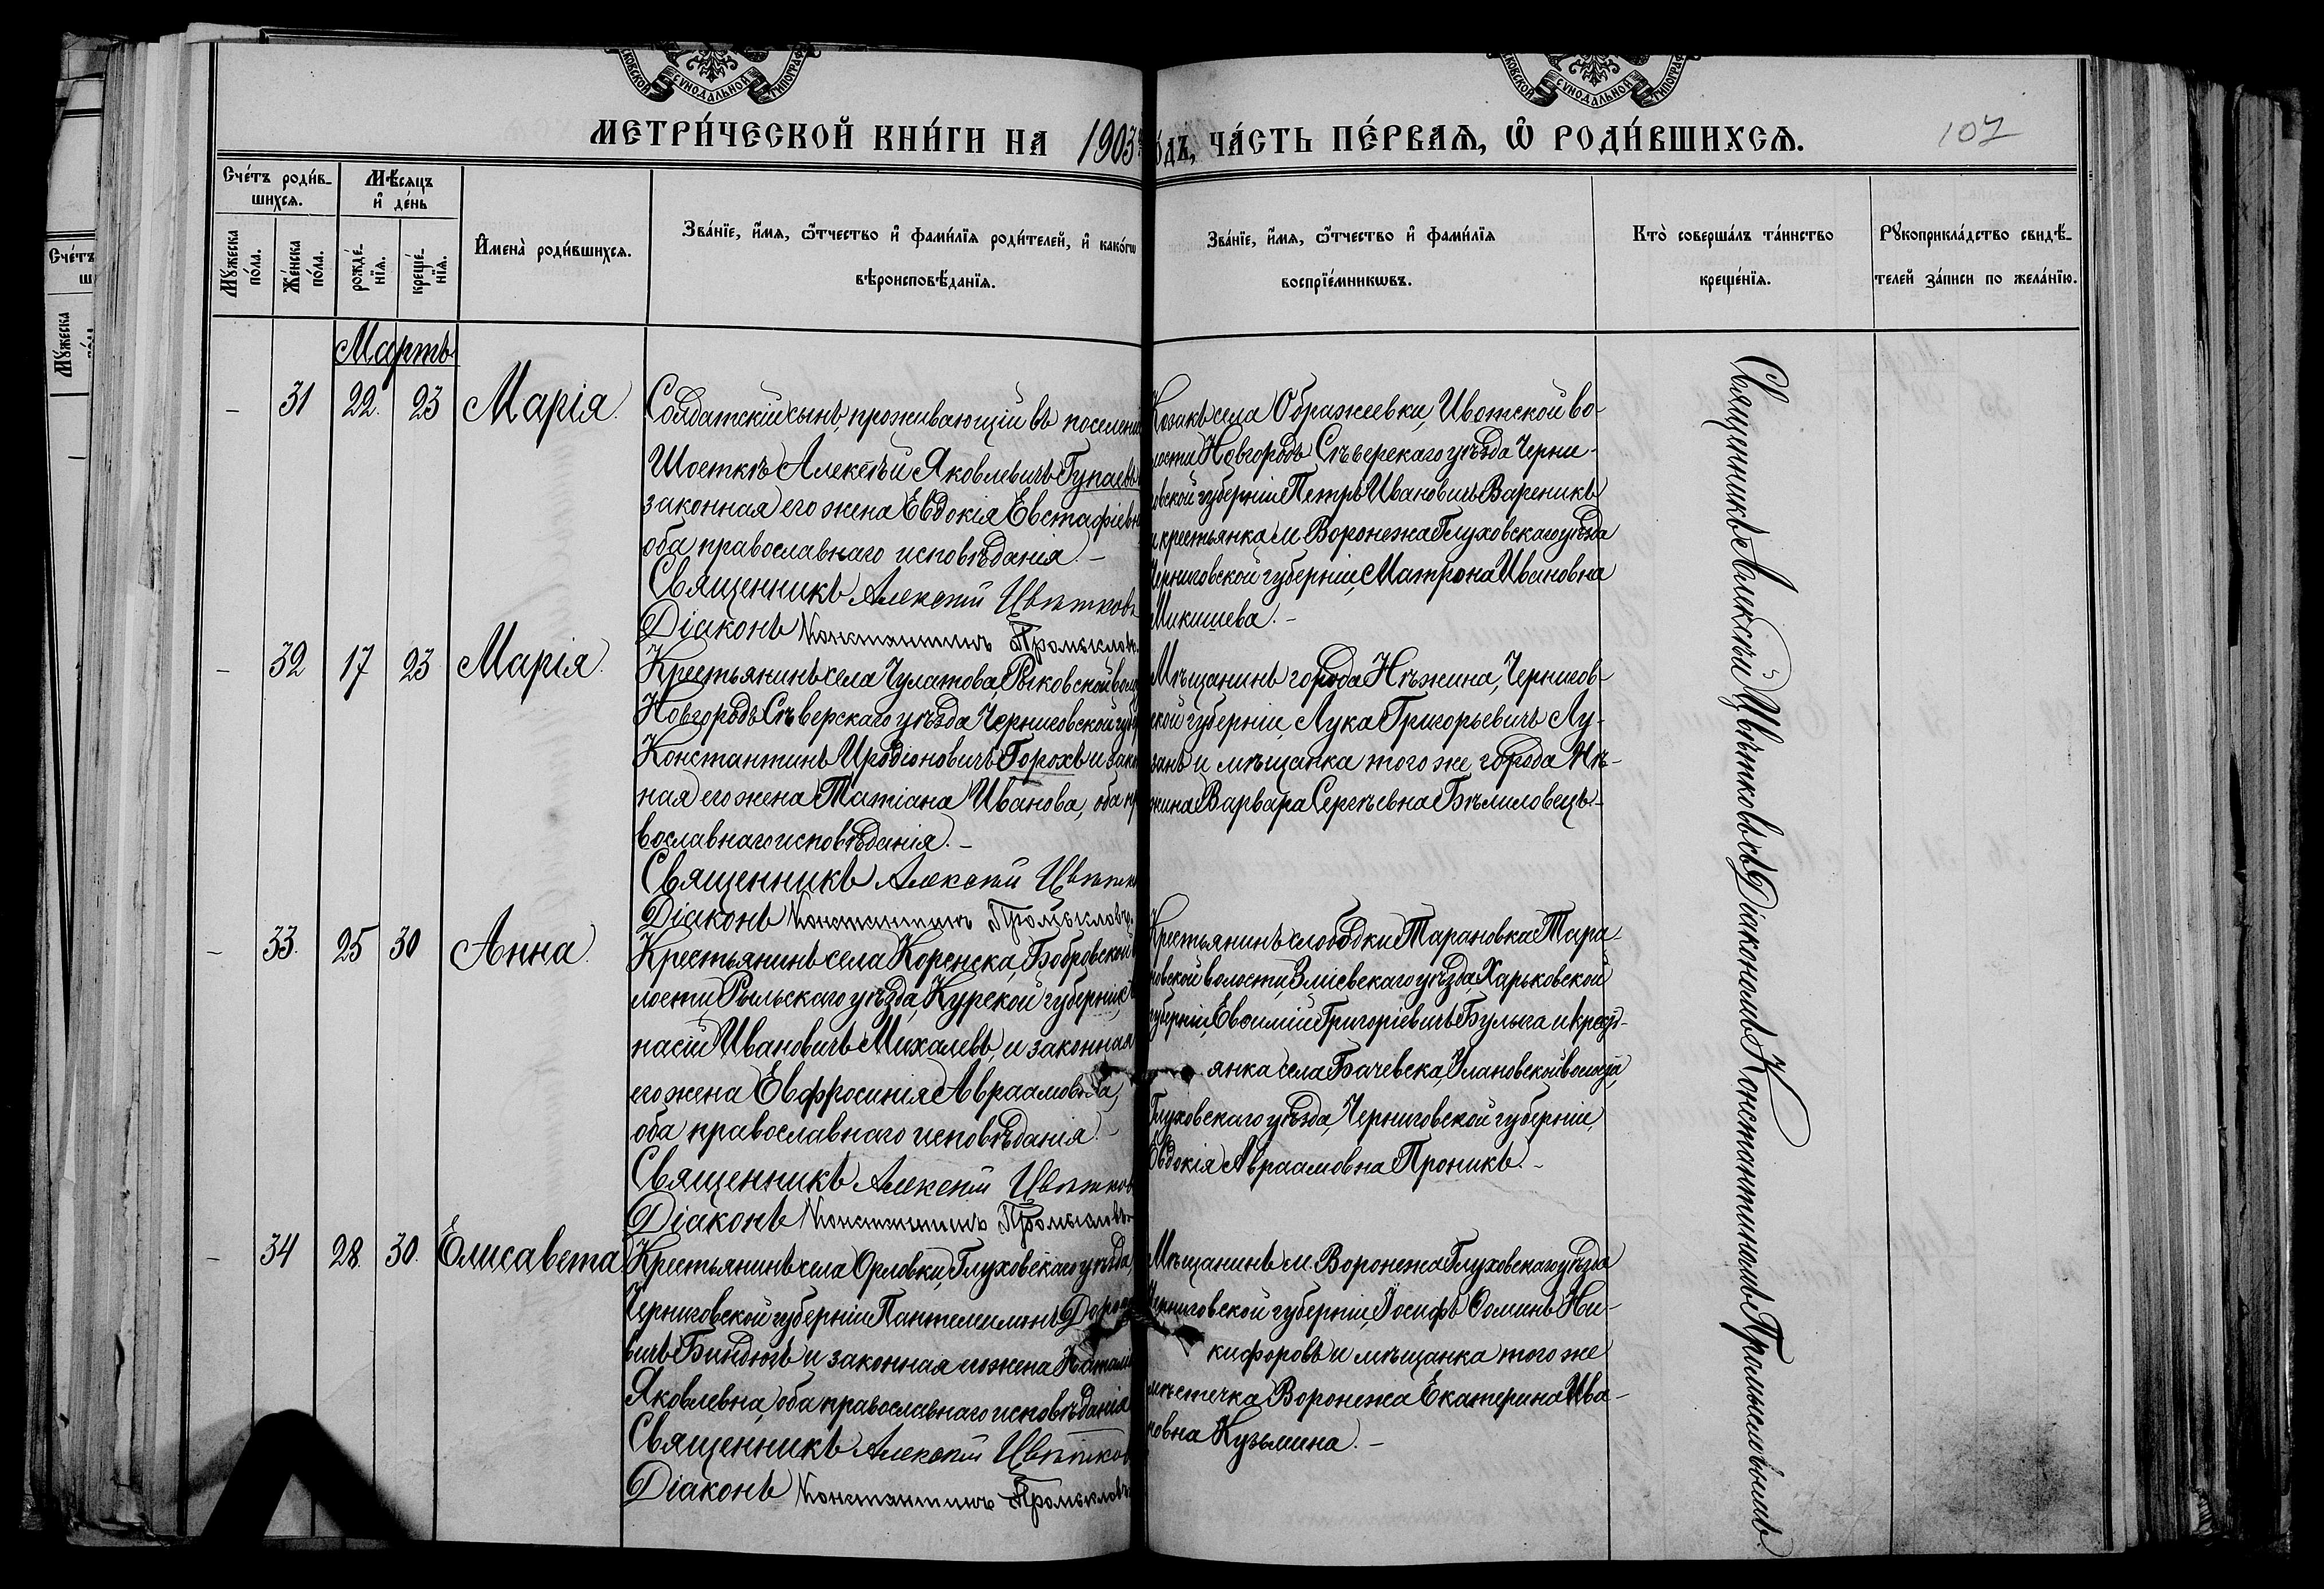 СѴНОДАЛЬНОЙ ТИПОГРАФ
МЕТРИ́ЧЕСКОЙ КНИ́ГИ НА 1903 ЧА́СТЬ ПЕ́РВАѦ, Ѽ РОДИ́ВШИХСѦ.
107
Сче́тъ роди́в-
шихсѧ.
Мꙋ́жеска по́ла.
Же́нска по́ла.
Мѣ́сѧцъ
и҆ де́нь
рожде́-
нїѧ.
креще́-
нїѧ.
И҆мена̀ роди́вшихсѧ.
Зва́нїе, и҆́мѧ, ѻ҆́тчество и҆ фами́лїѧ роди́телей, и҆ како́гѡ
вѣроисповѣ́данїѧ.
Зва́нїе, и҆́мѧ, ѻ҆́тчество и҆ фами́лїѧ
воспрїе́мникѡвъ.
Кто̀ соверша́лъ та́инство
креще́нїѧ.
Рꙋкоприкла́дство свидѣ́-
телей за́писи по жела́нїю.
Мартъ
- 31 22. 23 Марія.
Солдатскій сынъ, проживающій въ поселен
Шосткѣ Алексѣй Яковлевичъ Гупаевъ
законная его жена Евдокія Евстафіевн
оба православнаго исповѣданія. -
Священникъ Алексѣй Цвѣтковъ
Діаконъ Константинъ Промысловъ.
Козакъ села Ображеевки, Ивотской во-
лости Новгородъ Сѣверскаго уѣзда Черни-
овской губерніи Петръ Ивановичъ Вареникъ
и крестьянка м. Воронежа Глуховскаго уѣзда
Черниговской губерніи, Матрона Ивановна
Микишева. -
- 32 17 23 Марія.
Крестьянинъ села Чулатова, Рыковской воло
Новгородъ Сѣверскаго уѣзда Черниговской губ
Константинъ Иродіоновичъ Горохъ и закон
ная его жена Татіана Иванова, оба пр
вославнаго исповѣданія. -
Священникъ Алексѣй Цвѣтк
Діаконъ Константинъ Промысловъ.
Мѣщанинъ города Нѣжина, Чернигов-
ской губерніи, Лука Григорьевичъ Лу-
занъ и мѣщанка того же города Нѣ-
жина Варвара Сергѣевна Бѣлиловецъ. -
- 33. 25 30 Анна.
Крестьянинъ села Коренска, Бобровской
лости, Рыльскаго уѣзда, Курской губерніи,
насій Ивановичъ Михалевъ, и законная
его жена Евфросинія Авраамовна,
оба православнаго исповѣданія. -
Священникъ Алексѣй Цвѣтков
Діаконъ Константинъ Промысловъ.
Крестьянинъ слободки Тарановка Тара-
новской волости, Зміевскаго уѣзда, Харьковской
губерніи, Евѳимій Григоріевичъ Булыга и крест-
янка села Бачевска, Улановской волости,
Глуховскаго уѣзда, Черниговской губерніи,
Евдокія Авраамовна Проникъ. -
- 34 28. 30. Елисавета
Крестьянинъ села Орловки, Глуховскаго уѣзда,
Черниговской губерніи Пантелеимонъ
вичъ Биндюгъ и законная его жена Натали
Яковлевна, оба православнаго исповѣданія
Священникъ Алексѣй Цвѣтков
Діаконъ Константинъ Промысловъ
Мѣщанинъ м. Воронежа Глуховскаго уѣзда
Черниговской губерніи, Іосифъ Ѳоминъ Ни-
кифоровъ и мѣщанка того же
мѣстечка Воронежа Екатерина Ива-
новна Кузьмина. -
Священникъ Алексѣй Цвѣтковъ съ Діакономъ Константиномъ Промысловымъ.